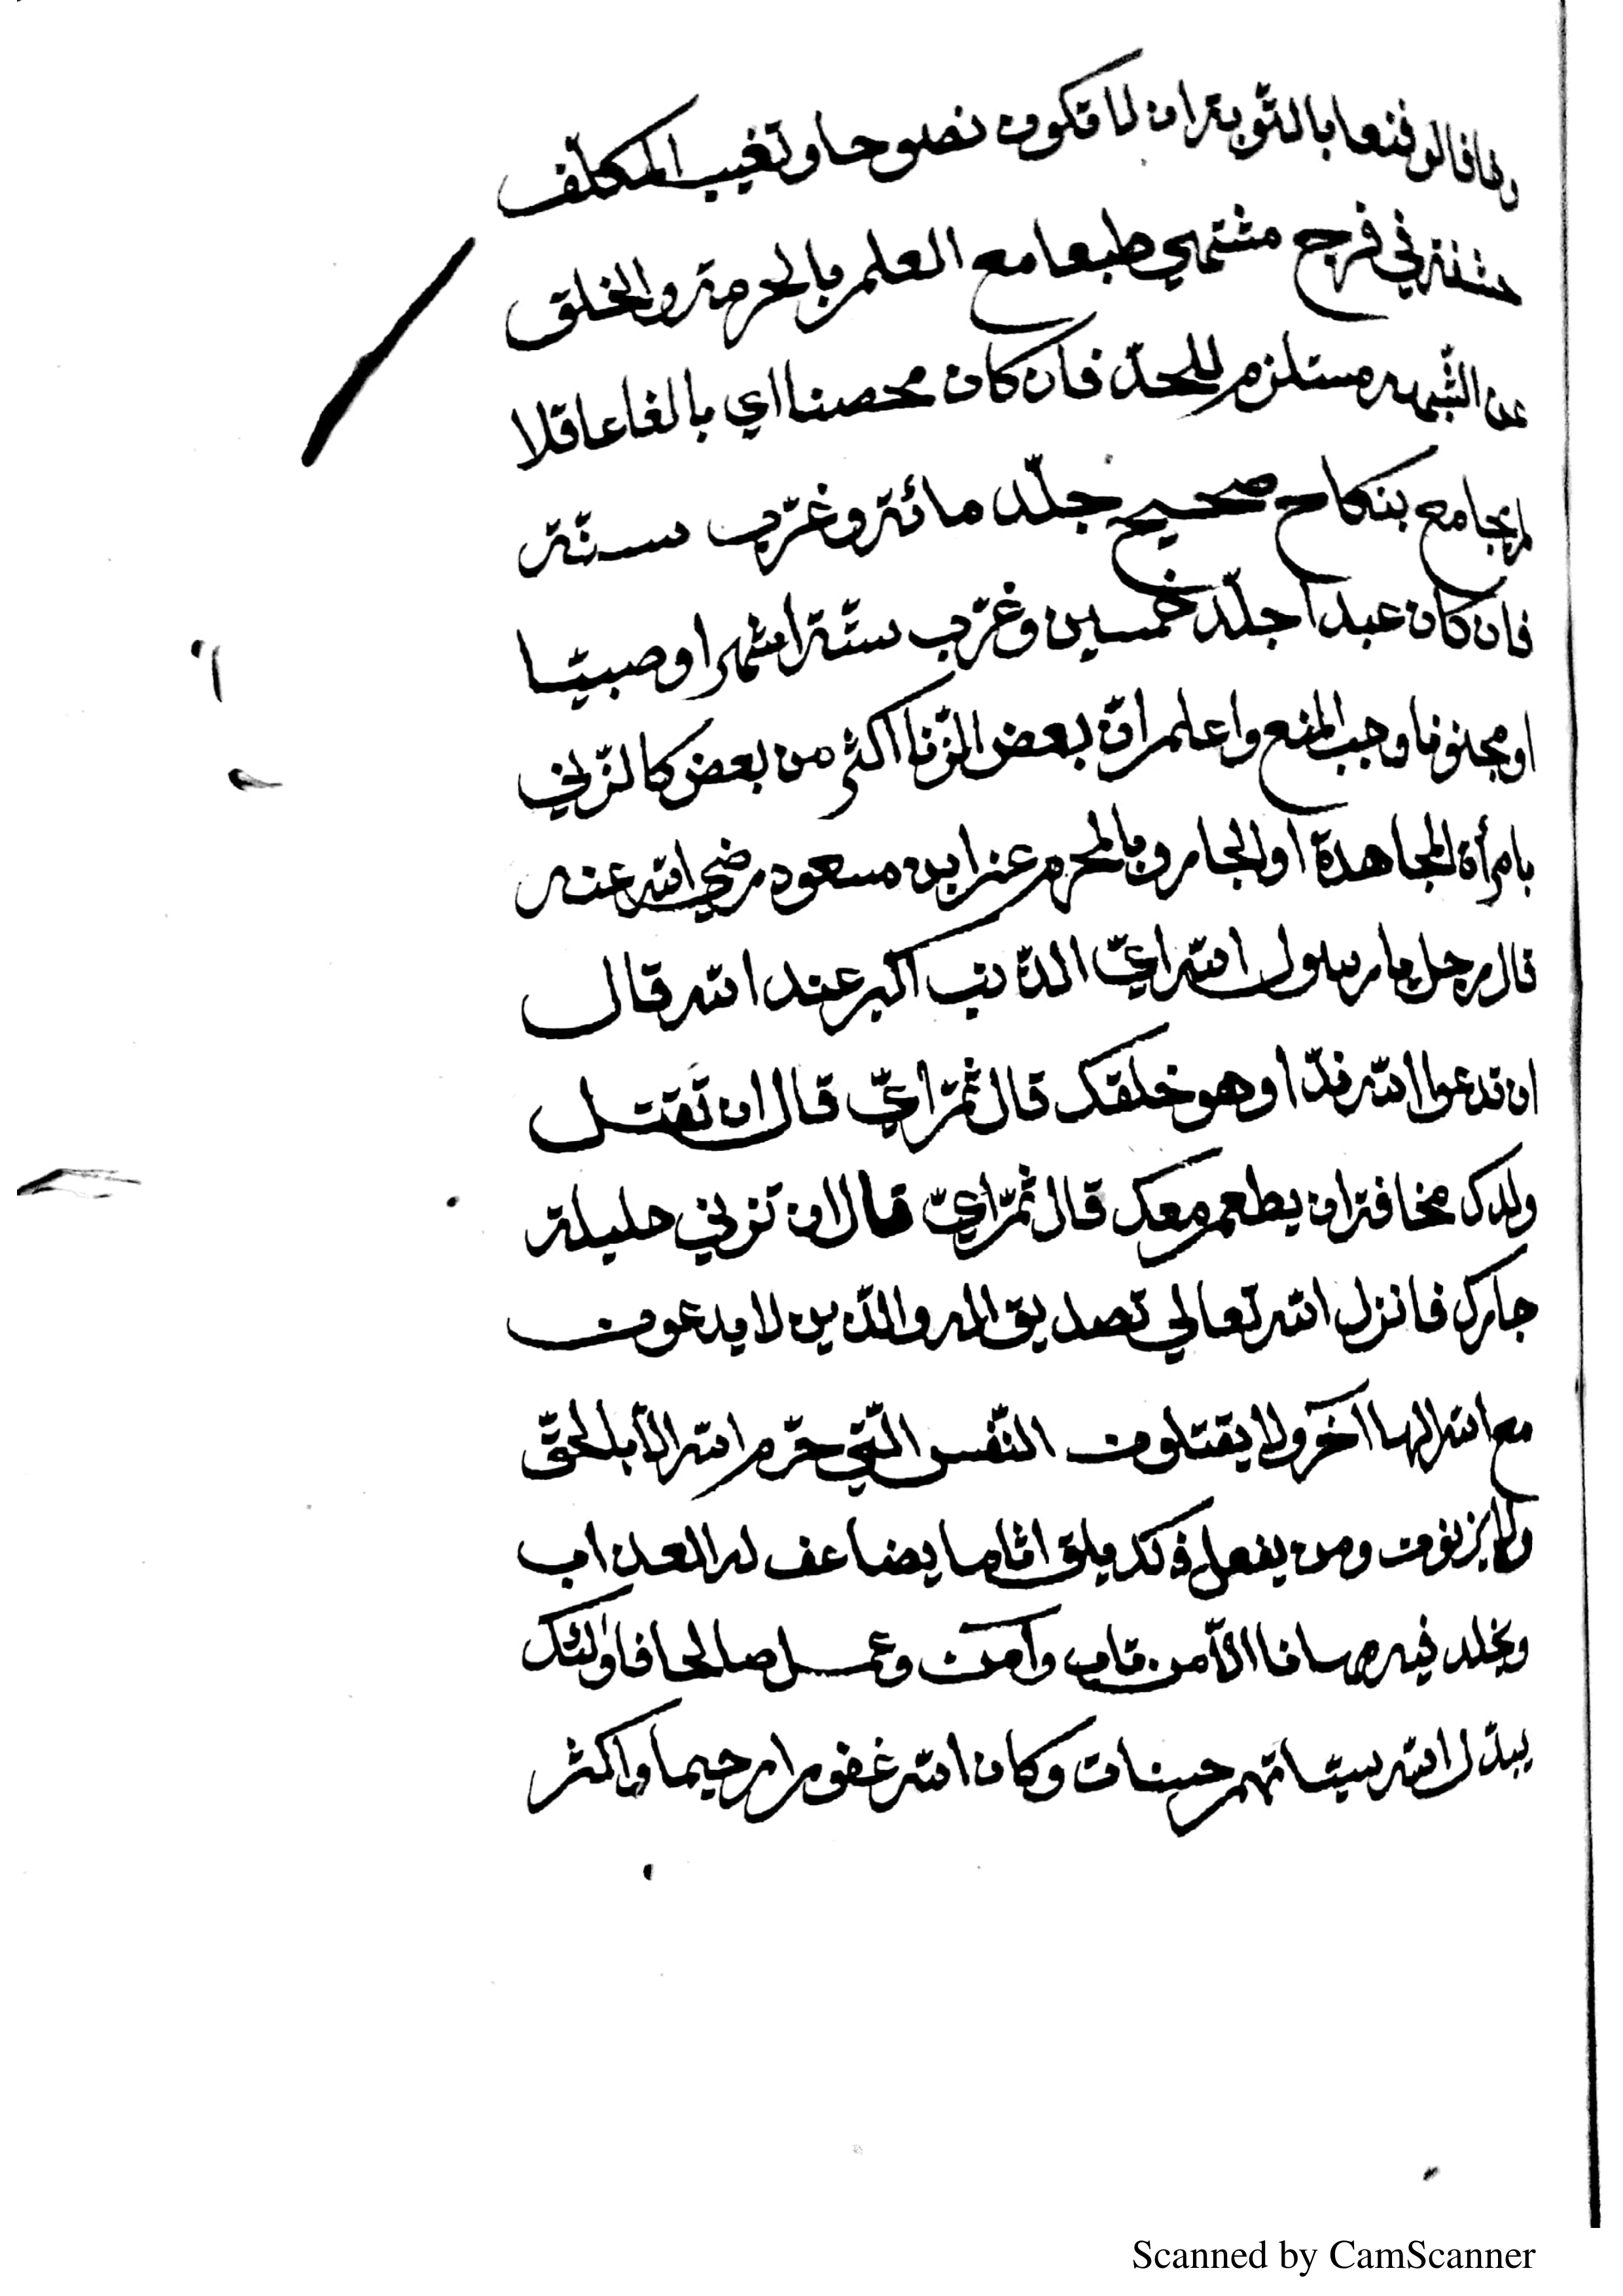 بالتّوبة ان لا تكون نصوحا وتغيب المكلّف
حشفته في فرج مشتهي طبعا مع العلم بالحرمة والخلق
عن الشّبهه مستلزم للحدّ فان كان محصنا اي بالغا عاقلا
لم يجامع بنكاح صحيح جلّد مائة وغرّب سنة
فان كان عبدا جلّد خمسين وغرّب ستّة اشهر او صبيّا
او مجنونا وجب المنع واعلم انّ بعض الزّنا اكثر من بعض كالزّني
بامرأة المجاهدة او الجار وبالمحرم عن ابن مسعود رضي الله عنه
قال رجل يا رسول الله ايّ الذّنب اكبر عند الله قال
ان تدعوا الله ندّا وهو خلقك قال ثمّ ايّ قال ان تقتل
ولدك مخافة ان يطعم معك قال ثمّ ايّ قال ان تزني حليلة
جارك فانزل الله تعالي تصديق اله والذّين لا يدعون
مع الله الها آخر ولا يقتلون النّفس الّتي حرّم الله الّا بالحقّ
ولا يزنون ومن يفعل ذلك يلق اثاما يضاعف له العذاب
ويخلد فيه مهانا الّا من تاب وآمن وعمل صالحا فاولئك
يبدّل الله سيّاتهم حسنات وكان الله غفورا رحيما واكثر
Scanned by CamScanner